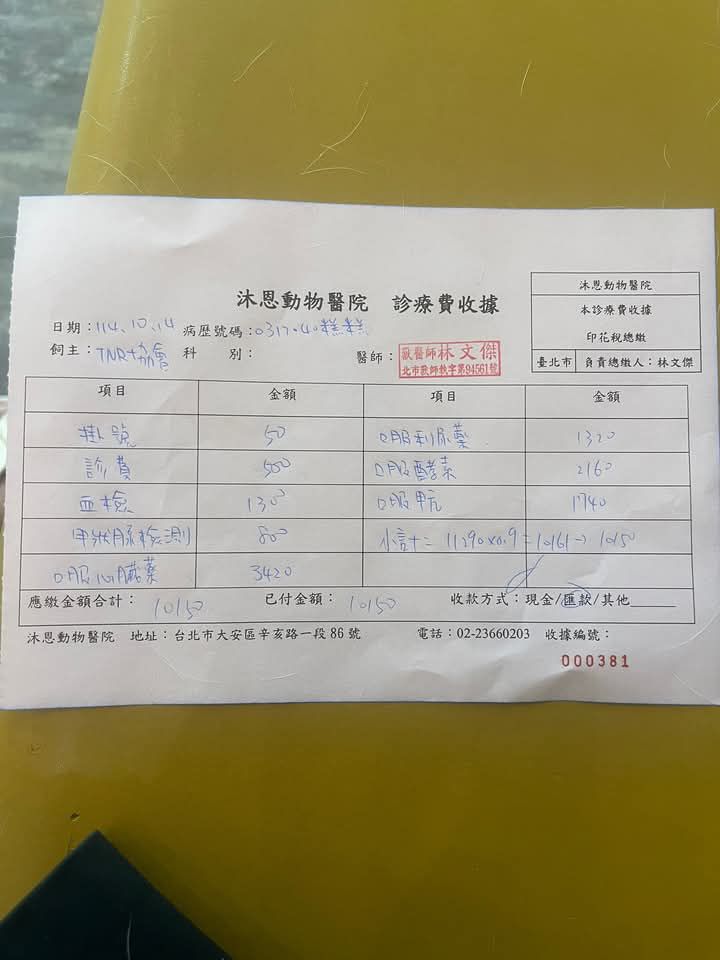 沐恩動物醫院 診療費收據
沐恩動物醫院
本診療費收據
印花稅總繳
臺北市 負責總繳人：林文傑
日期：114.10.14 病歷號碼：0317.40糕糕
飼主：TNR協會 科 別： 醫師：獸醫師林文傑
北市獸師執字第94561號
項目 金額 項目 金額
掛號 50 口服利尿藥 1320
診費 500 口服酵素 2160
血檢 1300 口服甲亢 1740
甲狀腺檢測 800 小計＝11290x0.9＝10161→10150
口服心臟藥 3420
應繳金額合計：10150 已付金額：10150 收款方式：現金/匯款/其他
沐恩動物醫院 地址：台北市大安區辛亥路一段86號 電話：02-23660203 收據編號：
000381